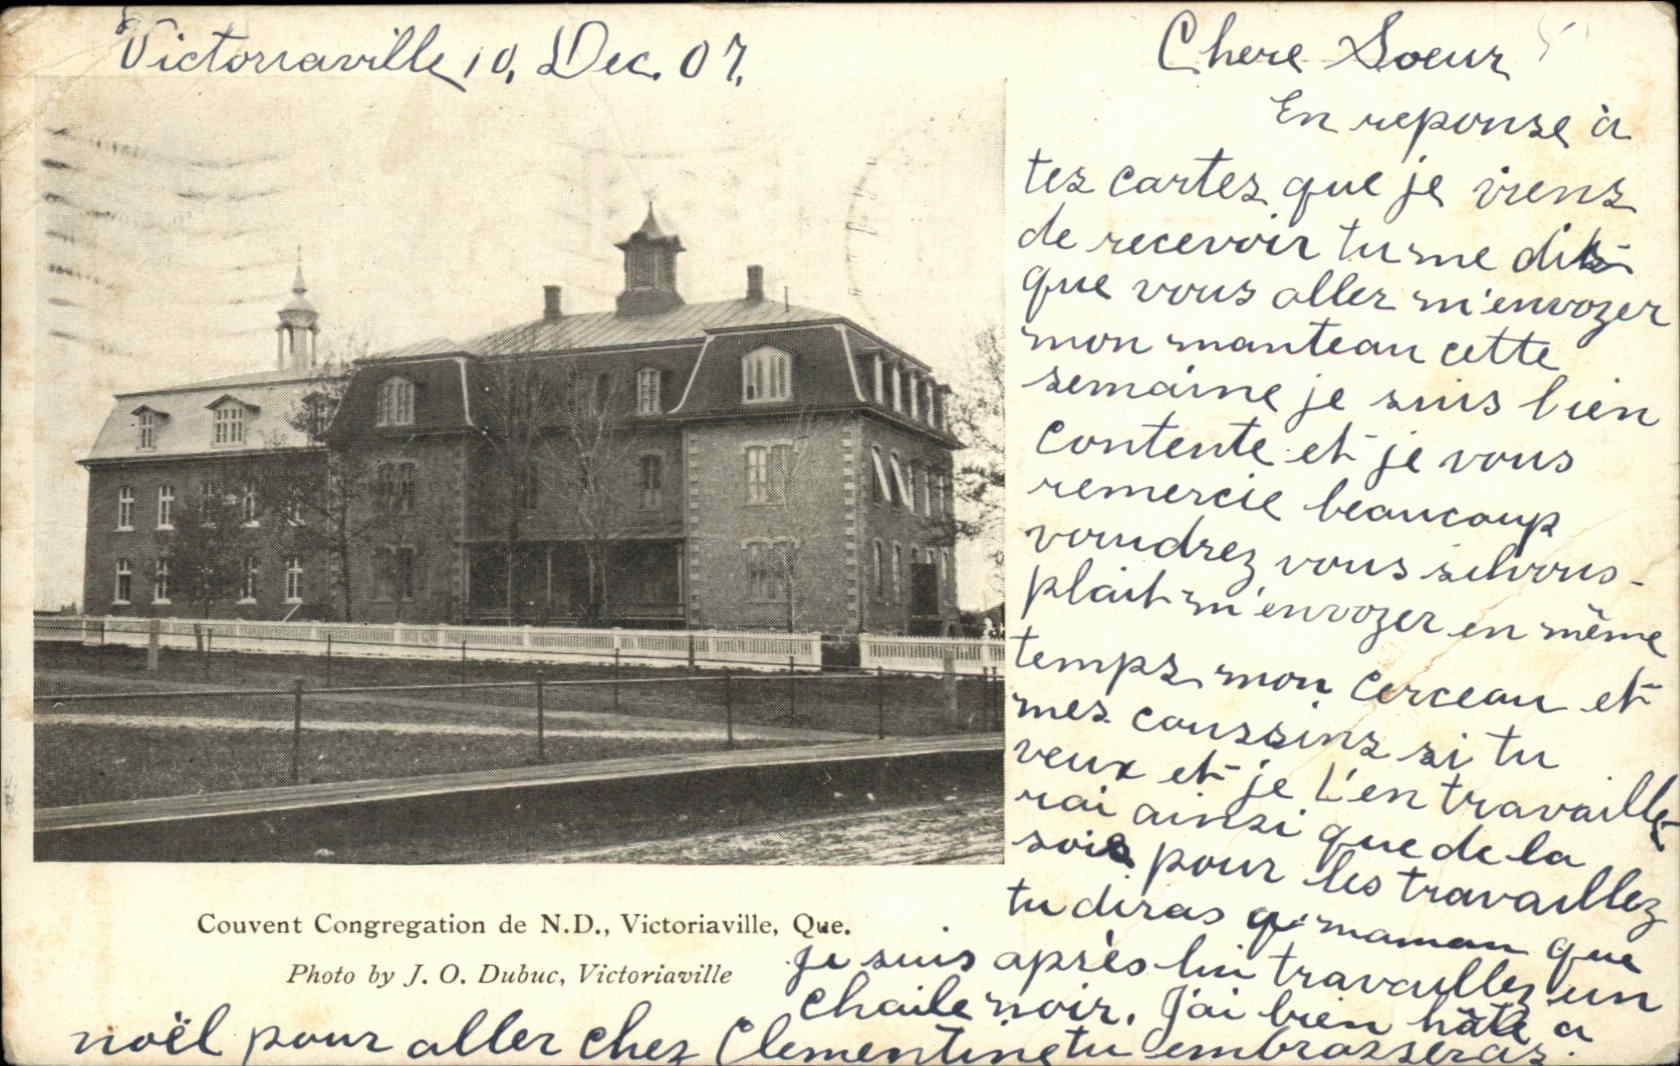 Victoriaville 10, Dec. 07.
Chere Soeur
En reponse à
tes cartes que je viens
de recevoir tu me dis
que vous allez m'envoyer
mon manteau cette
semaine je suis bien
contente et je vous
remercie beaucoup
voudrez vous silvous-
plait m'envoyer en même
temps mon cerceau et
mes coussins si tu
veux et je t'en travaille-
rai ainsi que de la
soie pour les travaillez
tu diras a maman que
je suis après lui travaillez un
chaile noir. J'ai bien hâte a
noël pour aller chez Clementine tu embrasseras.
Couvent Congregation de N.D., Victoriaville, Que.
Photo by J. O. Dubuc, Victoriaville